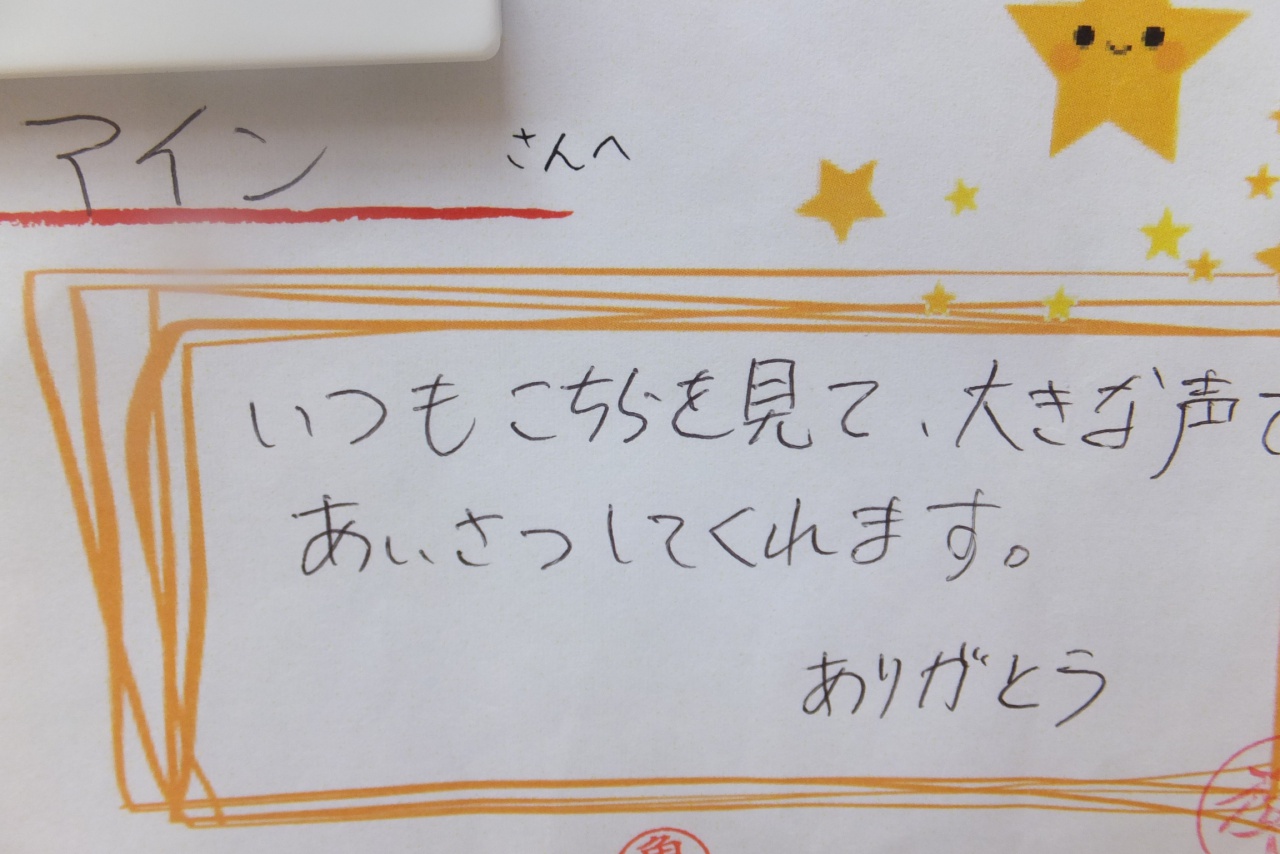 アイン さんへ
いつもこちらを見て、大きな声で
あいさつしてくれます。
ありがとう